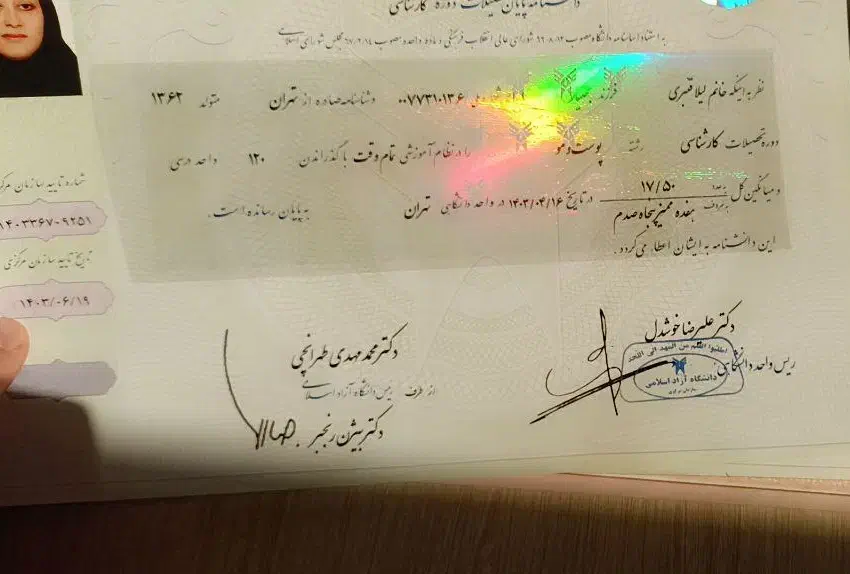 دانشنامه پایان تحصیلات دوره کارشناسی
به استناد اساسنامه دانشگاه مصوب ۱۴-۸-۶۶ شورای عالی انقلاب فرهنگی و ماده واحده مصوب ۶۷/۲/۱۸ مجلس شورای اسلامی
نظر به اینکه خانم لیلا قنبری فرزند ۰۰۷۷۳۱۰۱۳۶ و شناسنامه صادره از تهران متولد ۱۳۶۲
دوره تحصیلات کارشناسی رشته پوست و مو را در نظام آموزشی تمام وقت با گذراندن ۱۲۰ واحد درسی
و میانگین کل به عدد ۱۷/۵۰ به حروف هفده ممیز پنجاه صدم در تاریخ ۱۴۰۳/۰۴/۱۶ در واحد دانشگاهی تهران به پایان رسانده است.
این دانشنامه به ایشان اعطا می گردد.
شماره تایید سازمان مرکزی
۱۴۰۳۳۶۷-۹۲۵۱
تاریخ تایید سازمان مرکزی
۱۴۰۳/۰۶/۱۹
دکتر علیرضا خوشدل
رییس واحد دانشگاهی
اطلبوا العلم من المهد الی اللحد
دانشگاه آزاد اسلامی
دکتر محمد مهدی طهرانچی
از طرف رییس دانشگاه آزاد اسلامی
دکتر بیژن رنجبر